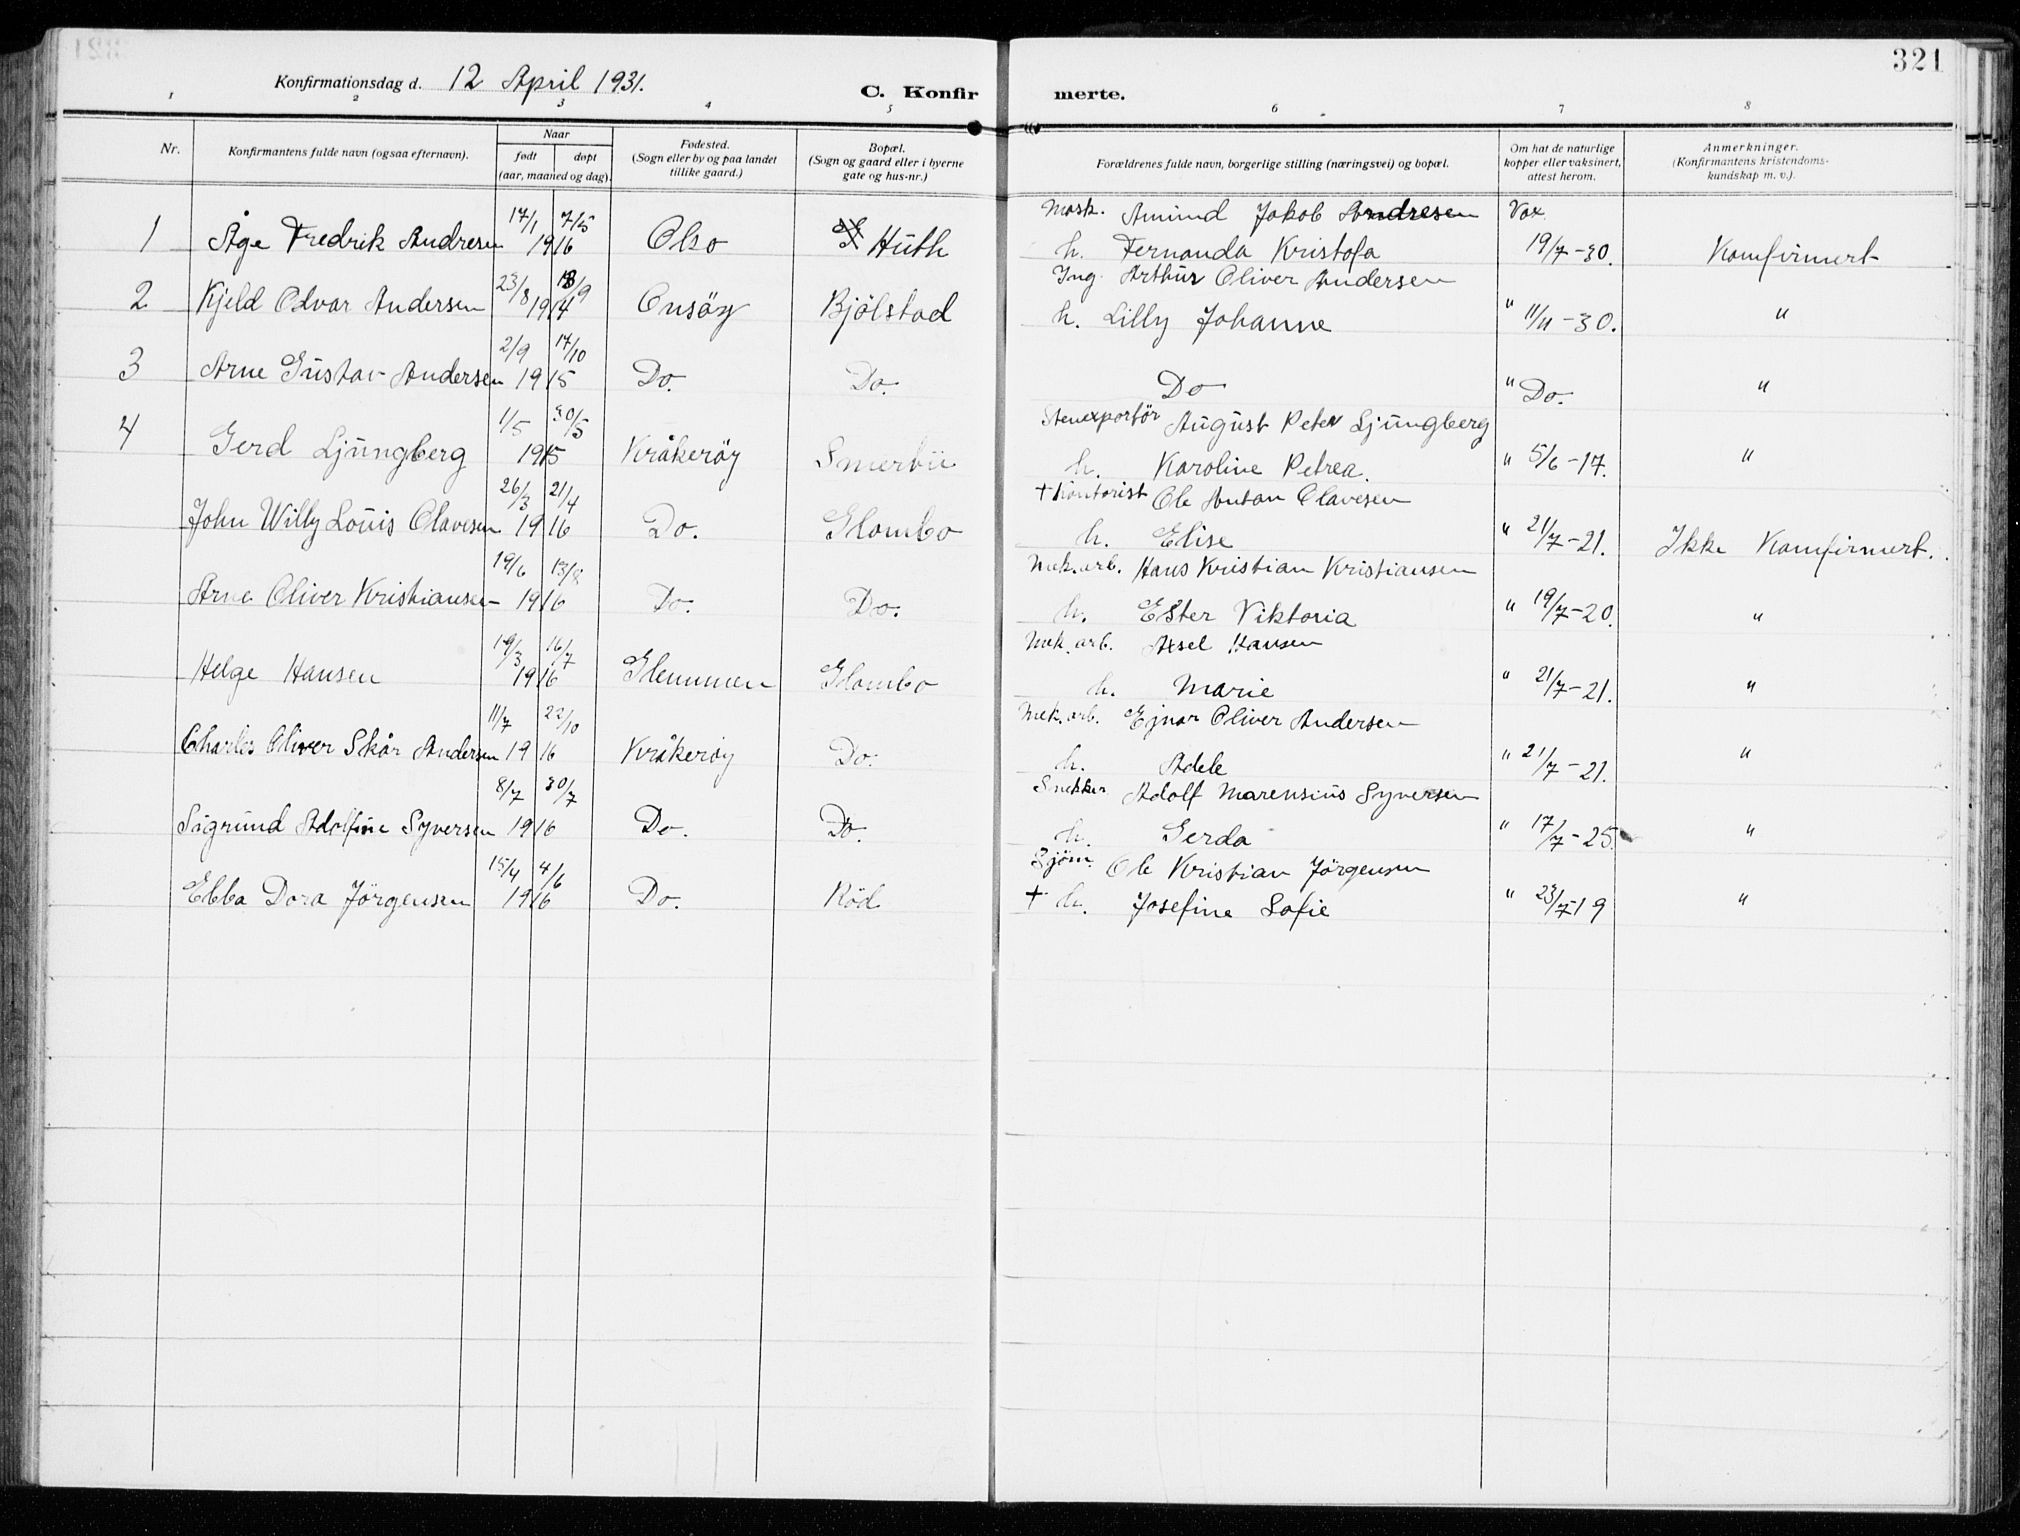 321
Konfirmationsdag d. 12 April 1931.
C. Konfirmerte.
1 2 3 4 5 6 7 8
Nr. Konfirmantens fulde navn (ogsaa efternavn). Naar født døpt (aar, maaned og dag). Fødested. (Sogn eller by og paa landet tillike gaard.) Bopæl. (Sogn og gaard eller i byerne gate og hus-nr.) Forældrenes fulde navn, borgerlige stilling (næringsvei) og bopæl. Om hat de naturlige kopper eller vaksinert, attest herom. Anmerkninger. (Konfirmantens kristendoms-kundskap m. v.).
17/1 7/5 Mask. Amund Jakob Andresen Vax.
1 Åge Fredrik Andresen 1916 Olso Huth h. Fernanda Kristofa 19/7-30. Komfirmert
23/8 18/9 Ing. Arthur Oliver Andersen
2 Kjeld Odvar Andersen 1914 Onsöy Bjölstad h. Lilly Johanne " 11/11-30. "
2/9 17/10
3 Arne Gustav Andersen 1915 Do. Do. Do " Do. "
1/5 30/5 Stenexportör August Peter Ljungberg
4 Gerd Ljungberg 1915 Kråkeröy Smertu h. Karoline Petrea. " 5/6-17. "
26/3 21/4 + Kontorist Ole Anton Olavesen
John Willy Louis Olavesen 1916 Do. Glombo h. Elise " 21/7-21. Ikke Komfirmert.
19/6 13/8 Mek. arb. Hans Kristian Kristiansen
Arne Oliver Kristiansen 1916 Do. Do. h. Ester Viktoria " 19/7-20. "
19/3 16/7 Mek. arb. Axel Hansen
Helge Hansen 1916 Glemmen Glombo h. Marie " 21/7-21. "
11/7 22/10 Mek. arb. Ejnar Oliver Andersen
Charles Oliver Skår Andersen 1916 Kråkeröy Do. h. Adele " 21/7-21. "
8/7 30/7 Snekker Adolf Marensius Syversen
Sigrund Adolfine Syversen 1916 Do. Do. h. Gerda " 17/7-25. "
15/4 4/6 Sjöm. Ole Kristian Jörgensen
Ebba Dora Jörgensen 1916 Do. Röd + h. Josefine Sofie " 23/7-19 "